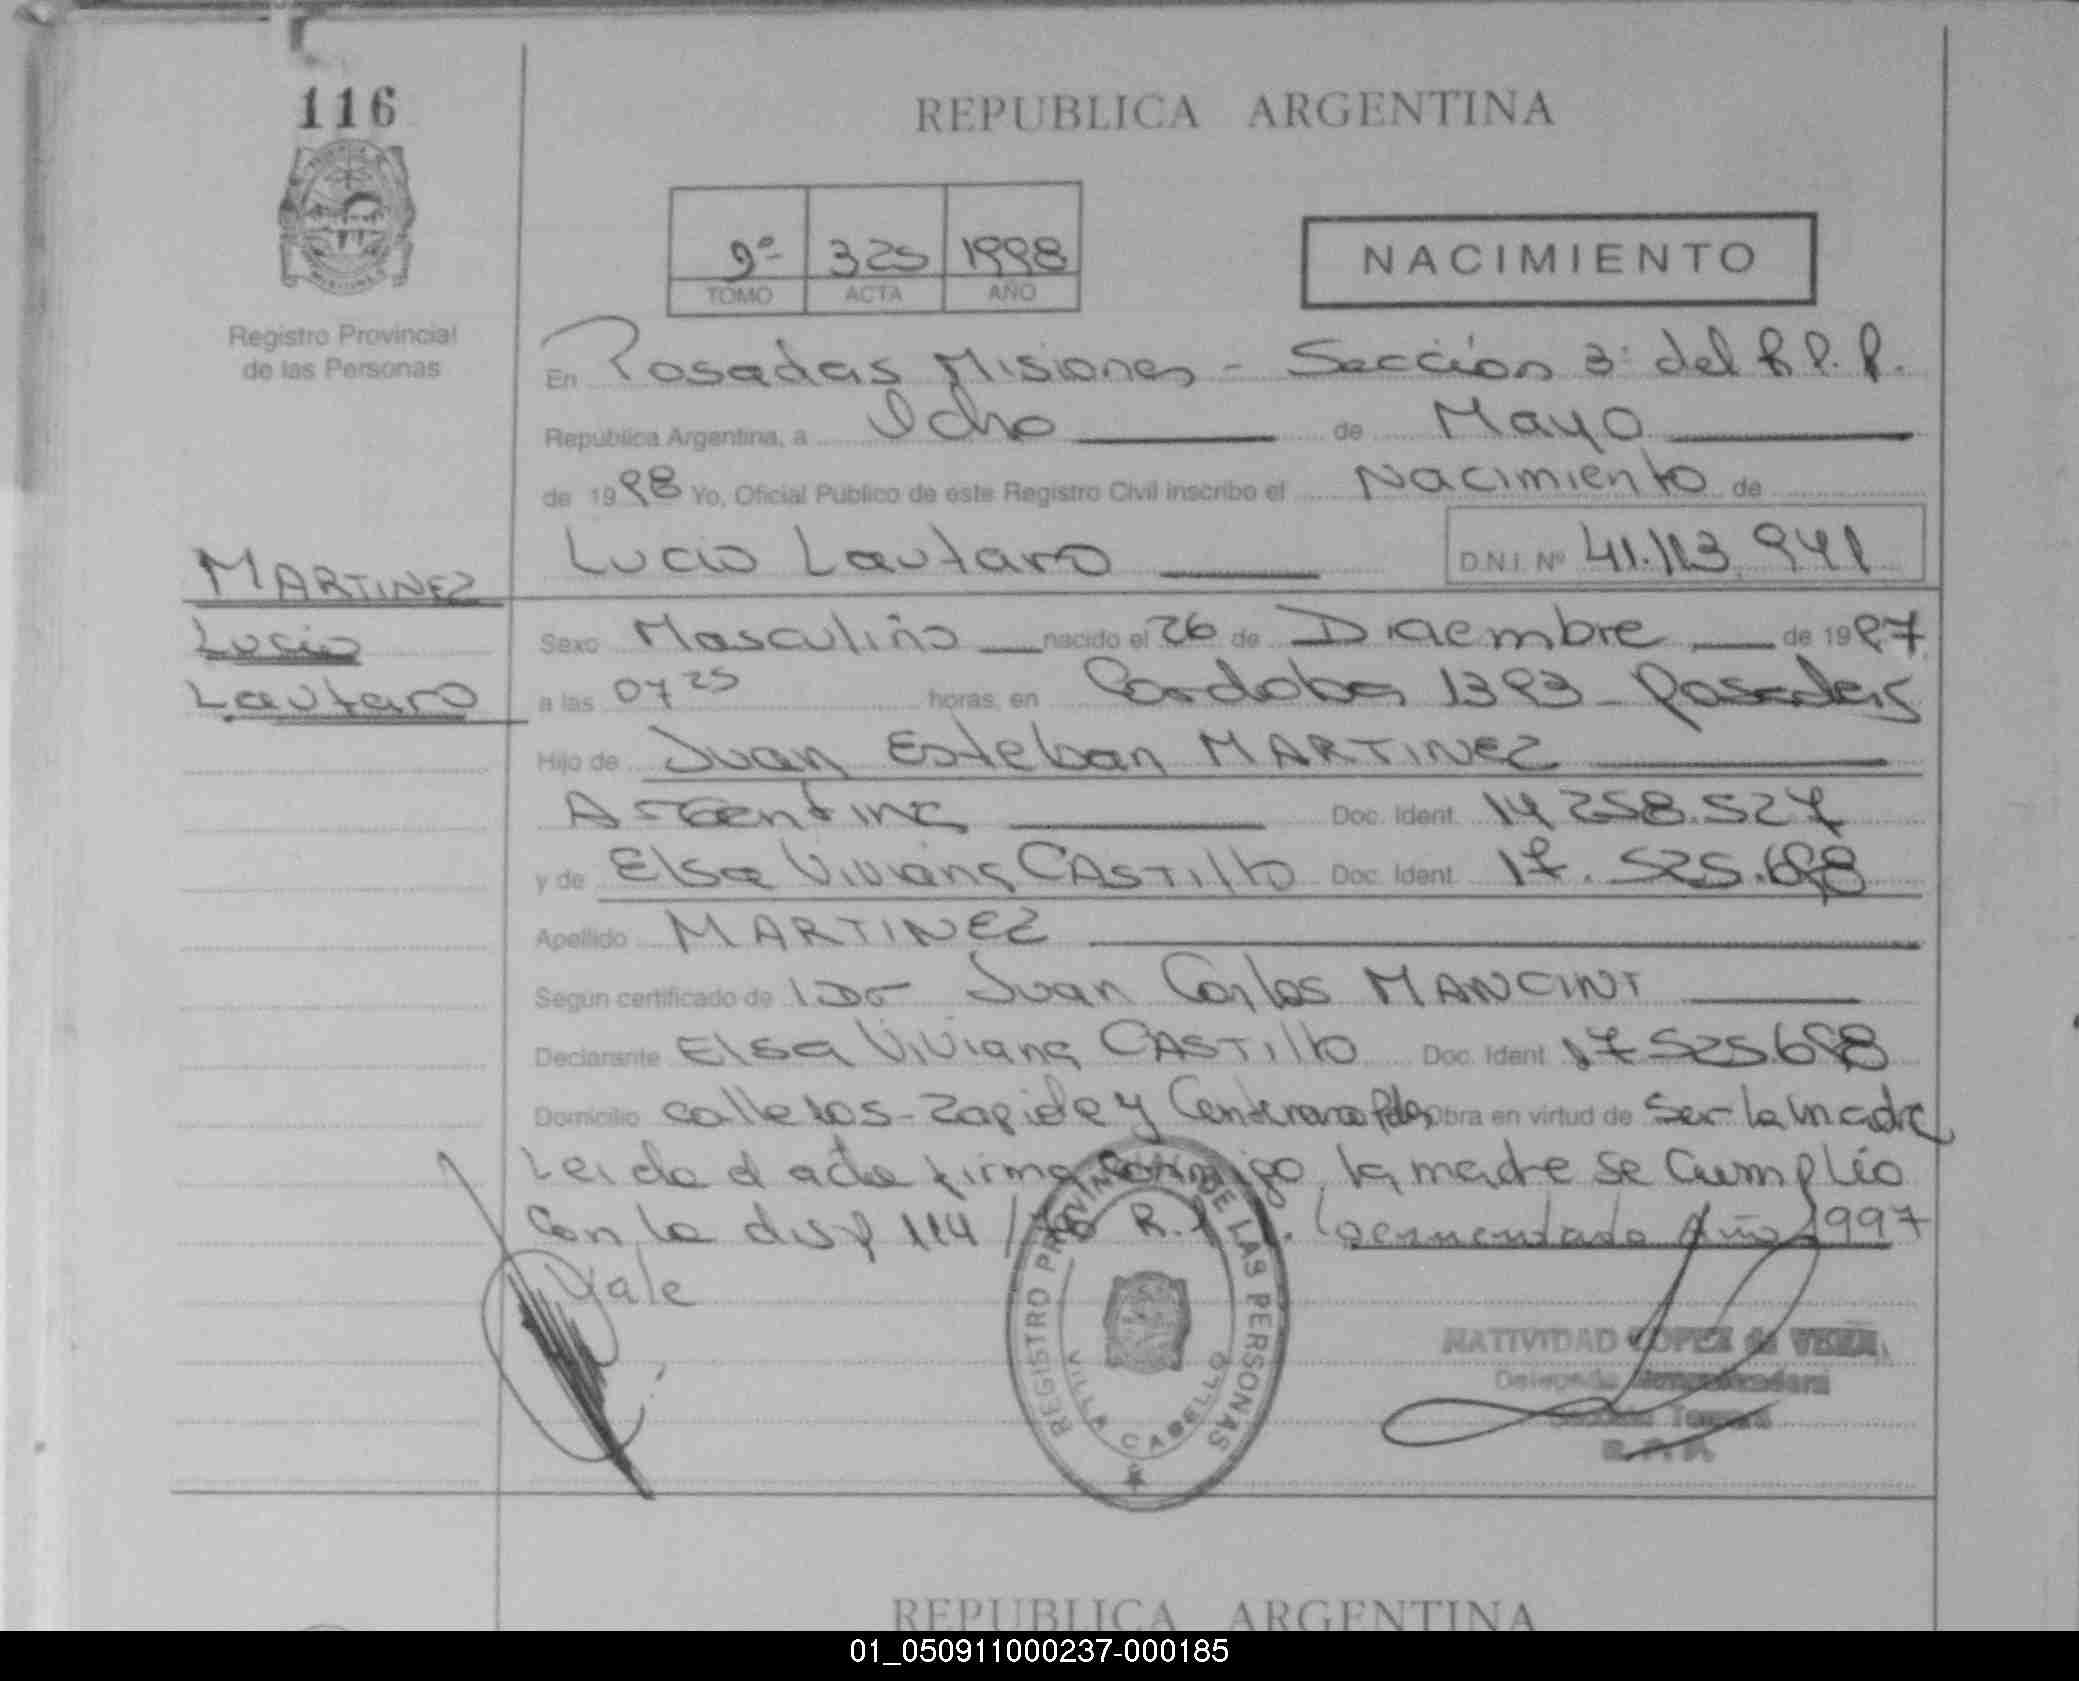 116
REPUBLICA ARGENTINA
9º 325 1998
TOMO ACTA AÑO
NACIMIENTO
Registro Provincial
de las Personas
En Posadas Misiones - Sección 3ª del R.P.P.
Republica Argentina, a Ocho de Mayo
de 1998 Yo, Oficial Publico de este Registro Civil inscribo el Nacimiento de
Lucio Lautaro D.N.I. Nº 41.113.941
MARTINEZ
Lucio
Lautaro
Sexo Masculino nacido el 26 de Diciembre de 1997
a las 07 25 horas, en Cordoba 1393 - Posadas
Hijo de Juan Esteban MARTINEZ
Argentina Doc. Ident. 14 258.527
y de Elsa Viviana CASTILLO Doc. Ident. 17.525.698
Apellido MARTINEZ
Según certificado de Dr Juan Carlos MANCINI
Declarante Elsa Viviana CASTILLO Doc. Ident. 17 525.698
Domicilio calle 105 - Zapiola y Centenario Pdas Obra en virtud de ser la madre
Leida el acta firma conmigo, la madre se cumplio
con la disp 114 / R. Año 1997
Vale
REGISTRO PROVINCIAL DE LAS PERSONAS
VILLA CABELLO
NATIVIDAD LOPEZ de
R. P. P.
REPUBLICA ARGENTINA
01_050911000237-000185